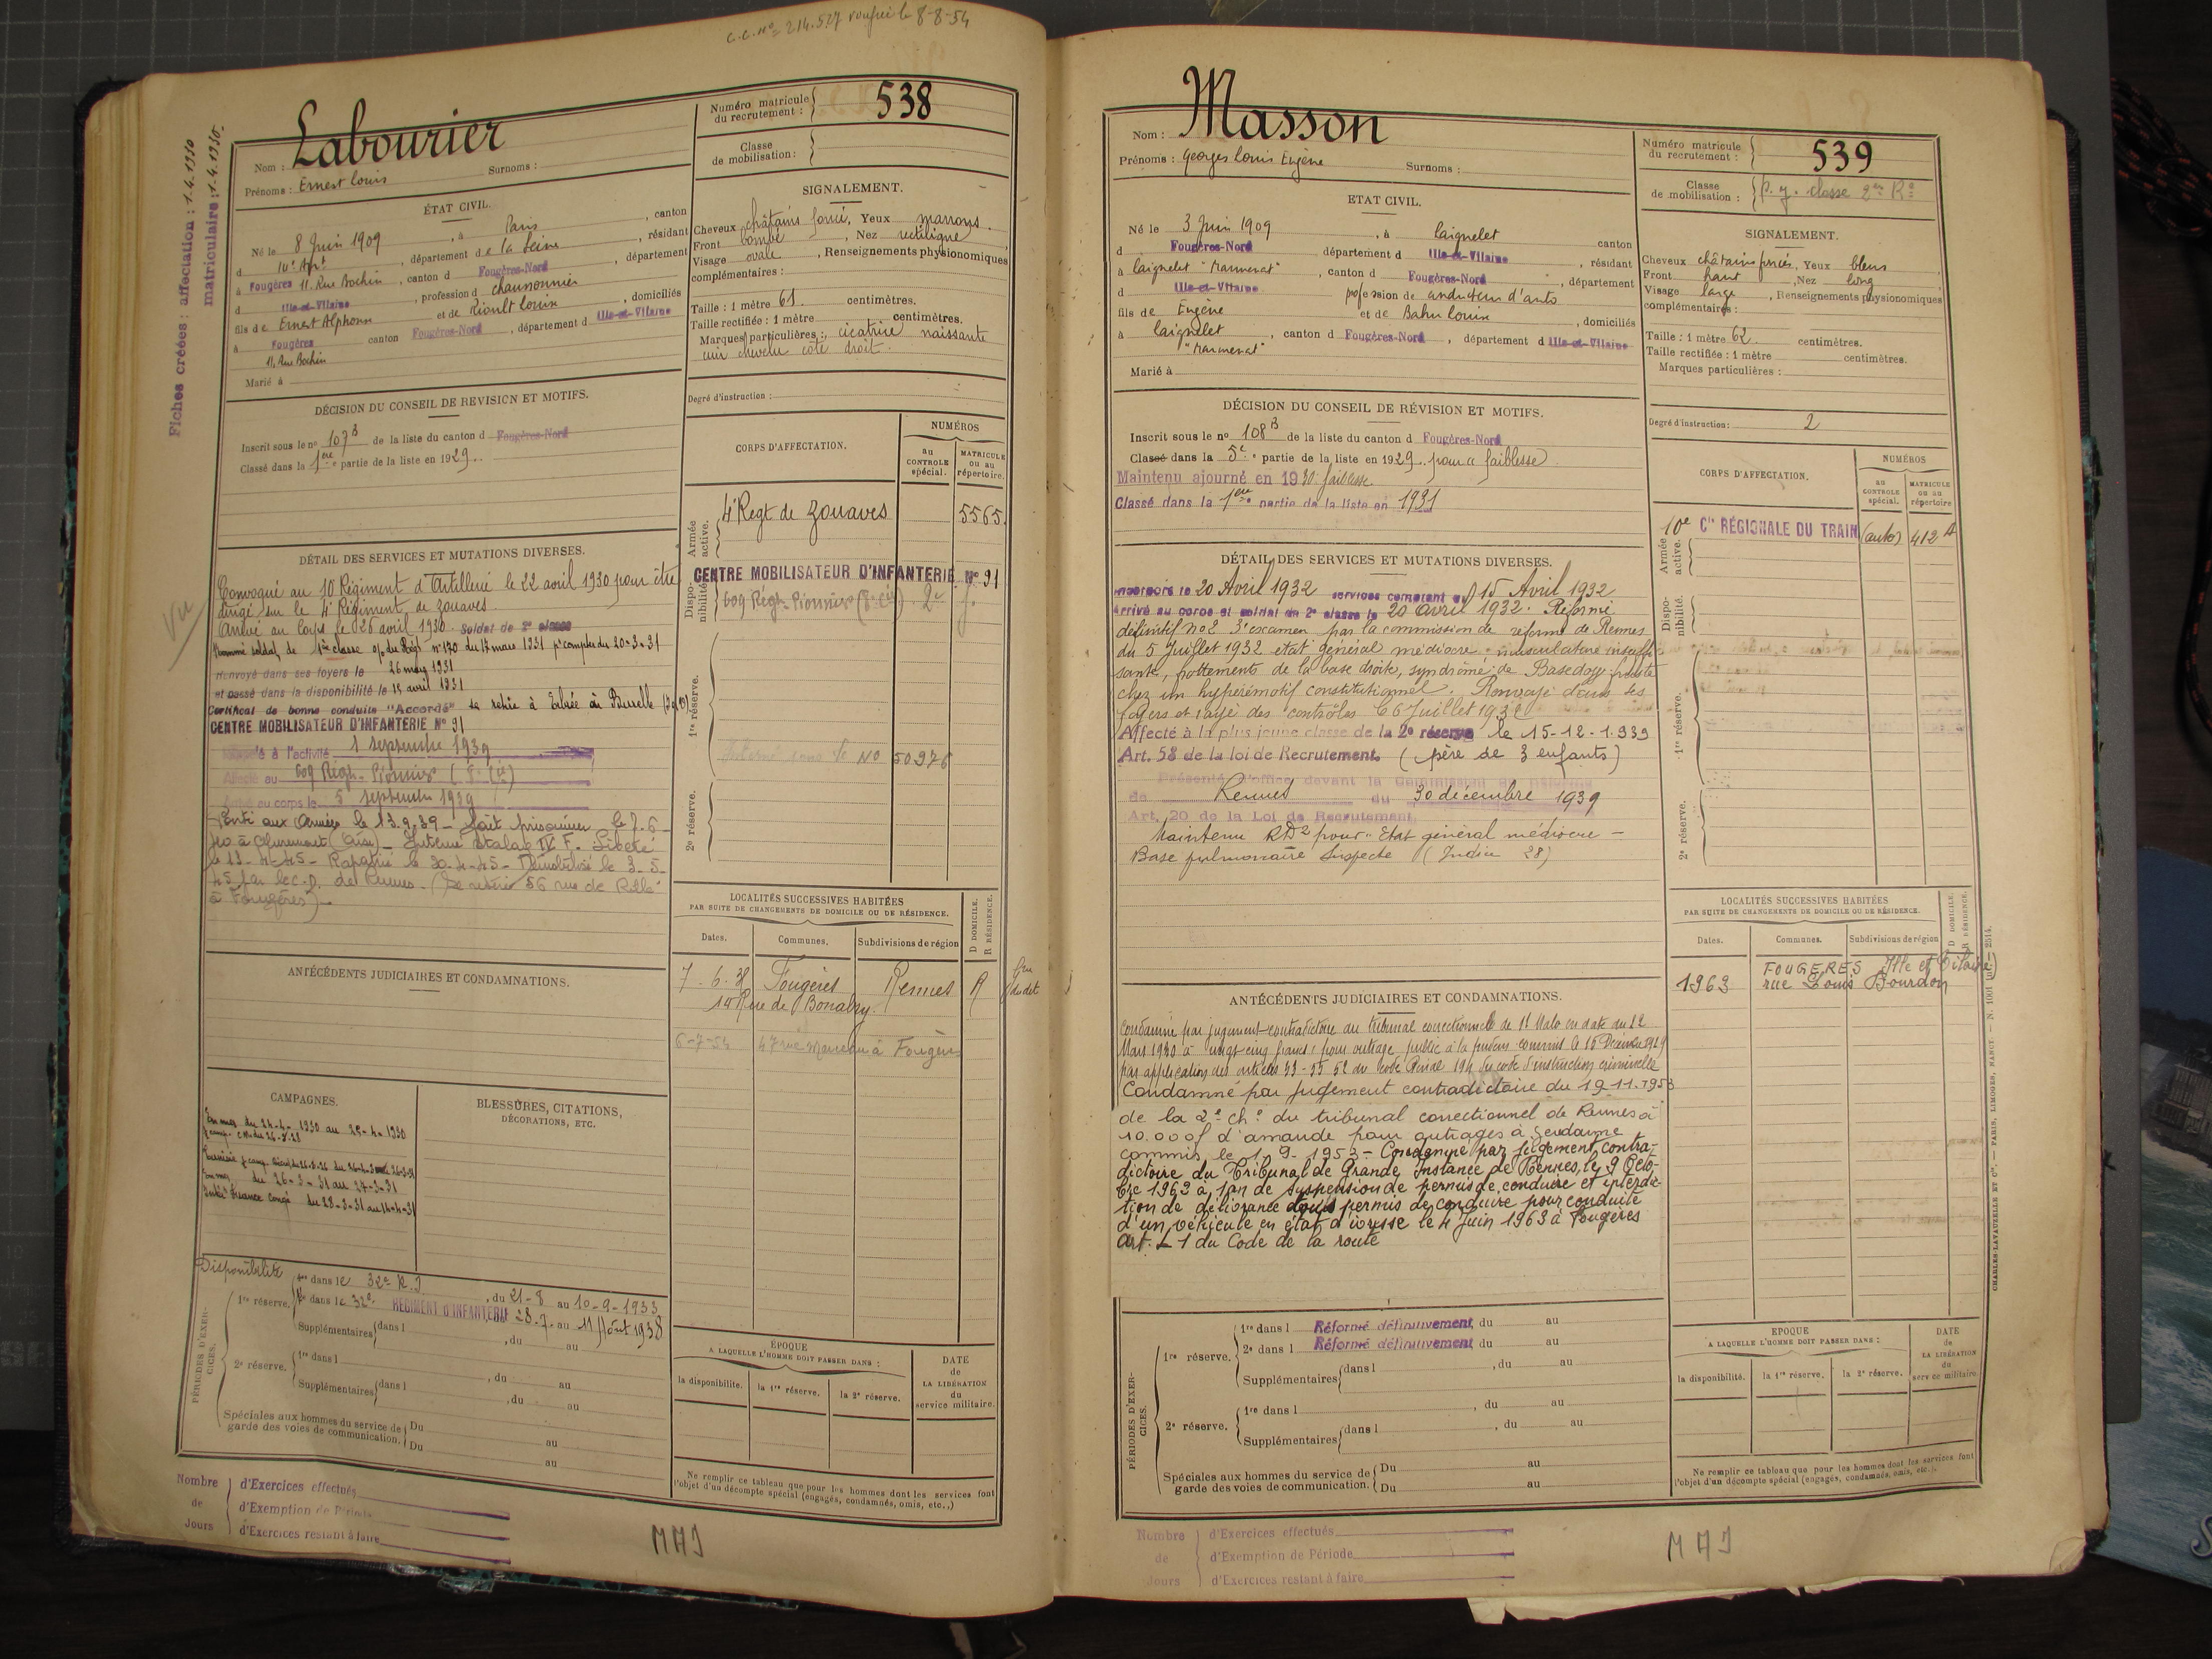 C.C. n° 214.527 le 8-8-54
Fiches créées : affectation : 1.4.1930
matriculaire : 1.4.1930.
Nom : Labourier
Prénoms : Ernest Louis Surnoms :
Numéro matricule du recrutement : 538
Classe de mobilisation :
ÉTAT CIVIL.
Né le 8 Juin 1909, à Paris, canton
d 10e Arrt, département de la Seine, résidant
à Fougères 11, Rue Bochin, canton d Fougères-Nord, département
d Ille-et-Vilaine, profession d chaussonnier
fils de Ernest Alphonse et de Rioult Louise, domiciliés
à Fougères canton Fougères-Nord, département d Ille-et-Vilaine
11, Rue Bochin
Marié à
SIGNALEMENT.
Cheveux châtains foncé, Yeux marrons.
Front bombé, Nez rectiligne
Visage ovale, Renseignements physionomiques
complémentaires :
Taille : 1 mètre 61 centimètres.
Taille rectifiée : 1 mètre centimètres.
Marques particulières : cicatrice naissante
cuir chevelu côté droit.
Degré d'instruction :
DÉCISION DU CONSEIL DE REVISION ET MOTIFS.
Inscrit sous le n° 107 B de la liste du canton d Fougères-Nord
Classé dans la 1ère partie de la liste en 1929.
CORPS D'AFFECTATION.
NUMÉROS
au CONTROLE spécial.
MATRICULE ou au répertoire.
Armée active.
4e Régt de Zouaves 5565.
Disponibilité.
CENTRE MOBILISATEUR D'INFANTERIE N° 91
609 Régt Pionniers (8e Cie)
1re réserve.
N° 50976
2e réserve.
DÉTAIL DES SERVICES ET MUTATIONS DIVERSES.
Vu
Convoqué au 10 Régiment d'Artillerie le 22 avril 1930 pour être
dirigé sur le 4e Régiment de zouaves.
Arrivé au Corps le 26 avril 1930. Soldat de 2e classe
Nommé soldat de 1ère classe o/ du Régt n° 170 du 17 mars 1931 pr compter du 20-3-31
Renvoyé dans ses foyers le 26 mars 1931
et passé dans la disponibilité le 15 avril 1931
Certificat de bonne conduite "Accordé" se retire à
CENTRE MOBILISATEUR D'INFANTERIE N° 91
à l'activité 1 septembre 1939
Affecté au 609 Régt Pionniers (8e Cie)
au corps le 5 septembre 1939
Parti aux Armées le 13.9.39 – fait prisonnier le 7.6
40 à (Oise) – Interné Stalag IV F. Libéré
le 13-4-45 – Rapatrié le 30-4-45 – Démobilisé le 3-5-
45 par le C.D. de Rennes. (Se retire 56 rue de
à Fougères).
ANTÉCÉDENTS JUDICIAIRES ET CONDAMNATIONS.
LOCALITÉS SUCCESSIVES HABITÉES
PAR SUITE DE CHANGEMENTS DE DOMICILE OU DE RÉSIDENCE.
Dates. Communes. Subdivisions de région
D DOMICILE. R RÉSIDENCE.
7-6-38 Fougères Rennes R
14 Rue de Bonabry.
6-7-54 47 rue Marceau à Fougères
CAMPAGNES.
BLESSURES, CITATIONS, DÉCORATIONS, ETC.
En mer du 24-4-1930 au 25-4-1930
En mer du 26-3-31 au 27-3-31
du 28-3-31 au 14-4-31
Disponibilité
PÉRIODES D'EXERCICES.
1re réserve. 1re dans le 32e R.I., du 21-8 au 10-9-1933
2e dans le 32e RÉGIMENT D'INFANTERIE 28.7. au 11 Août 1938
Supplémentaires dans l, du au
2e réserve. 1re dans l, du au
Supplémentaires dans l, du au
Spéciales aux hommes du service de garde des voies de communication. Du au
Du au
ÉPOQUE
A LAQUELLE L'HOMME DOIT PASSER DANS :
la disponibilité. la 1re réserve. la 2e réserve.
DATE de LA LIBÉRATION du service militaire.
Ne remplir ce tableau que pour les hommes dont les services font
l'objet d'un décompte spécial (engagés, condamnés, omis, etc.,)
Nombre de Jours
d'Exercices effectués
d'Exemption de Période
d'Exercices restant à faire
MAJ
Nom : Masson
Prénoms : Georges Louis Eugène Surnoms :
Numéro matricule du recrutement : 539
Classe de mobilisation : p. j. classe 2e Re
ETAT CIVIL.
Né le 3 Juin 1909, à Laignelet canton
d Fougères-Nord département d Ille-et-Vilaine, résidant
à Laignelet, canton d Fougères-Nord, département
d Ille-et-Vilaine profession de conducteur d'auto
fils de Eugène et de Bahu Louise, domiciliés
à Laignelet, canton d Fougères-Nord, département d Ille-et-Vilaine
Marié à
SIGNALEMENT.
Cheveux châtains foncés, Yeux bleus
Front haut, Nez long
Visage large, Renseignements physionomiques
complémentaires :
Taille : 1 mètre 62 centimètres.
Taille rectifiée : 1 mètre centimètres.
Marques particulières :
Degré d'instruction : 2
DÉCISION DU CONSEIL DE RÉVISION ET MOTIFS.
Inscrit sous le n° 108 B de la liste du canton d Fougères-Nord
Classé dans la 5e partie de la liste en 1929. pour "faiblesse"
Maintenu ajourné en 1930 faiblesse.
Classé dans la 1ère partie de la liste en 1931
CORPS D'AFFECTATION.
NUMÉROS
au CONTROLE spécial.
MATRICULE ou au répertoire
Armée active.
10e Cie RÉGIONALE DU TRAIN (auto) 412 A
Disponibilité.
1re réserve.
2e réserve.
DÉTAIL DES SERVICES ET MUTATIONS DIVERSES.
Incorporé le 20 Avril 1932 services comptant du 15 Avril 1932
Arrivé au corps et soldat de 2e classe le 20 avril 1932. Réformé
définitif n° 2 3e examen par la commission de réforme de Rennes
du 5 Juillet 1932 état général médiocre – musculature insuffi
sante, frottements de la base droite, syndrôme de Basedow fruste
chez un hyperémotif constitutionnel. Renvoyé dans ses
foyers et rayé des contrôles le 6 Juillet 1932
Affecté à la plus jeune classe de la 2e réserve le 15-12-1939
Art. 58 de la loi de Recrutement. (père de 3 enfants)
Présenté d'office devant la Commission de réforme
de Rennes du 30 décembre 1939
Art. 20 de la Loi de Recrutement,
Maintenu RD2 pour "Etat général médiocre –
Base pulmonaire suspecte (Indice 28)
ANTÉCÉDENTS JUDICIAIRES ET CONDAMNATIONS.
Condamné par jugement contradictoire du tribunal correctionnel de St Malo en date du 12
Mars 1930 à vingt cinq francs pour outrage public à la pudeur commis le 15 Décembre 1929
par application des articles 33-55 52 du code Pénal 194 du code d'instruction criminelle
Condamné par jugement contradictoire du 19-11-1953
de la 2e ch. du tribunal correctionnel de Rennes à
10.000f d'amande pour outrages à gendarme
commis le 1.9.1953 – Condamné par jugement contra-
dictoire du Tribunal de Grande Instance de Rennes, le 9 Octo-
bre 1963 à 1 an de suspension de permis de conduire et interdic
tion de délivrance tous permis de conduire pour conduite
d'un véhicule en état d'ivresse le 4 Juin 1963 à Fougères
art. L 1 du Code de la route
LOCALITÉS SUCCESSIVES HABITÉES
PAR SUITE DE CHANGEMENTS DE DOMICILE OU DE RÉSIDENCE.
Dates. Communes. Subdivisions de région
D DOMICILE. R RÉSIDENCE.
1963 FOUGERES Ille et Vilaine
rue Louis Bourdon
CHARLES-LAVAUZELLE ET Cie. — PARIS, LIMOGES, NANCY.
PÉRIODES D'EXERCICES.
1re réserve. 1re dans l Réformé définitivement, du au
2e dans l Réformé définitivement, du au
Supplémentaires dans l, du au
2e réserve. 1re dans l, du au
Supplémentaires dans l, du au
Spéciales aux hommes du service de garde des voies de communication. Du au
Du au
EPOQUE
A LAQUELLE L'HOMME DOIT PASSER DANS :
la disponibilité. la 1re réserve. la 2e réserve.
DATE de LA LIBÉRATION du service militaire.
Ne remplir ce tableau que pour les hommes dont les services font
l'objet d'un décompte spécial (engagés, condamnés, omis, etc.,).
Nombre de Jours
d'Exercices effectués
d'Exemption de Période
d'Exercices restant à faire
MAJ